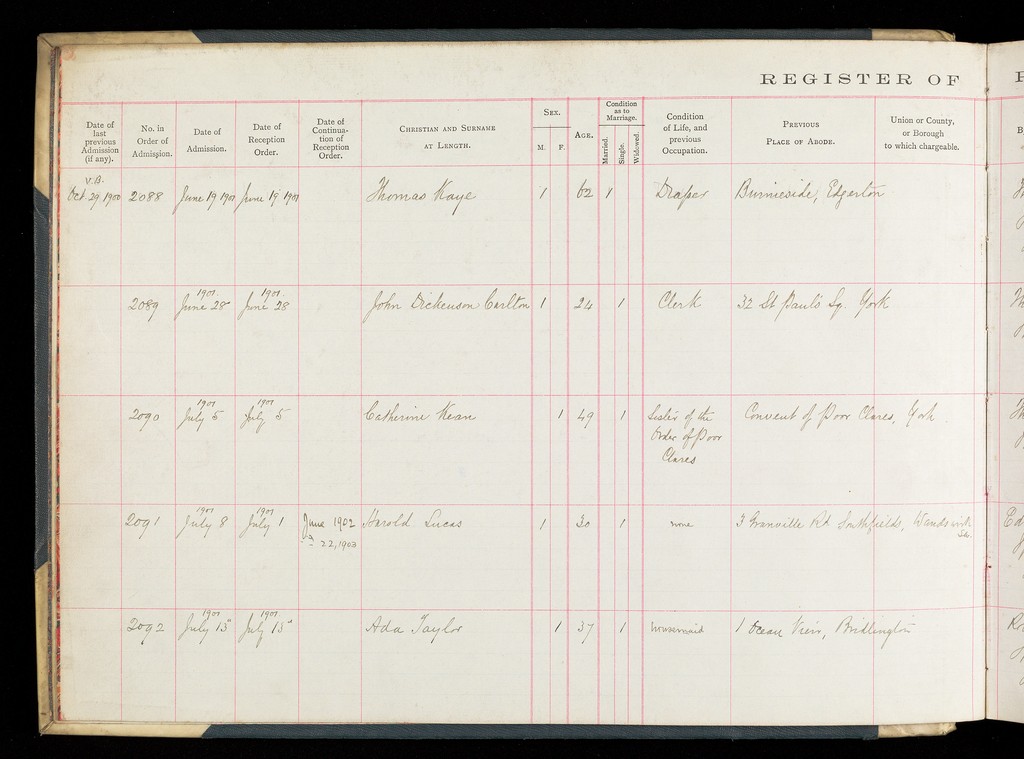 REGISTER OF
Date of last previous Admission (if any).
No. in Order of Admission.
Date of Admission.
Date of Reception Order.
Date of Continuation of Reception Order.
CHRISTIAN AND SURNAME AT LENGTH.
SEX.
M. F.
AGE.
Condition as to Marriage.
Married. Single. Widowed.
Condition of Life, and previous Occupation.
PREVIOUS PLACE OF ABODE.
Union or County, or Borough to which chargeable.
V.B.
Oct 29 1900 2088 June 19 1901 June 19 1901 Thomas Kaye 1 62 1 Draper Burnieside, Edgerton
1901 1901
2089 June 28 June 28 John Dickenson Carlton 1 24 1 Clerk 32 St Paul's Sq. York
1901 1901
2090 July 5 July 5 Catherine Kean 1 49 1 Sister of the Convent of Poor Clares, York
Order of Poor
Clares
1901 1901
2091 July 8 July 1 June 1902 Harold Lucas 1 30 1 none 3 Granville Rd Southfields,
22, 1903
1901 1901
2092 July 13 July 13 Ada Taylor 1 37 1 housemaid 1 Ocean View, Bridlington